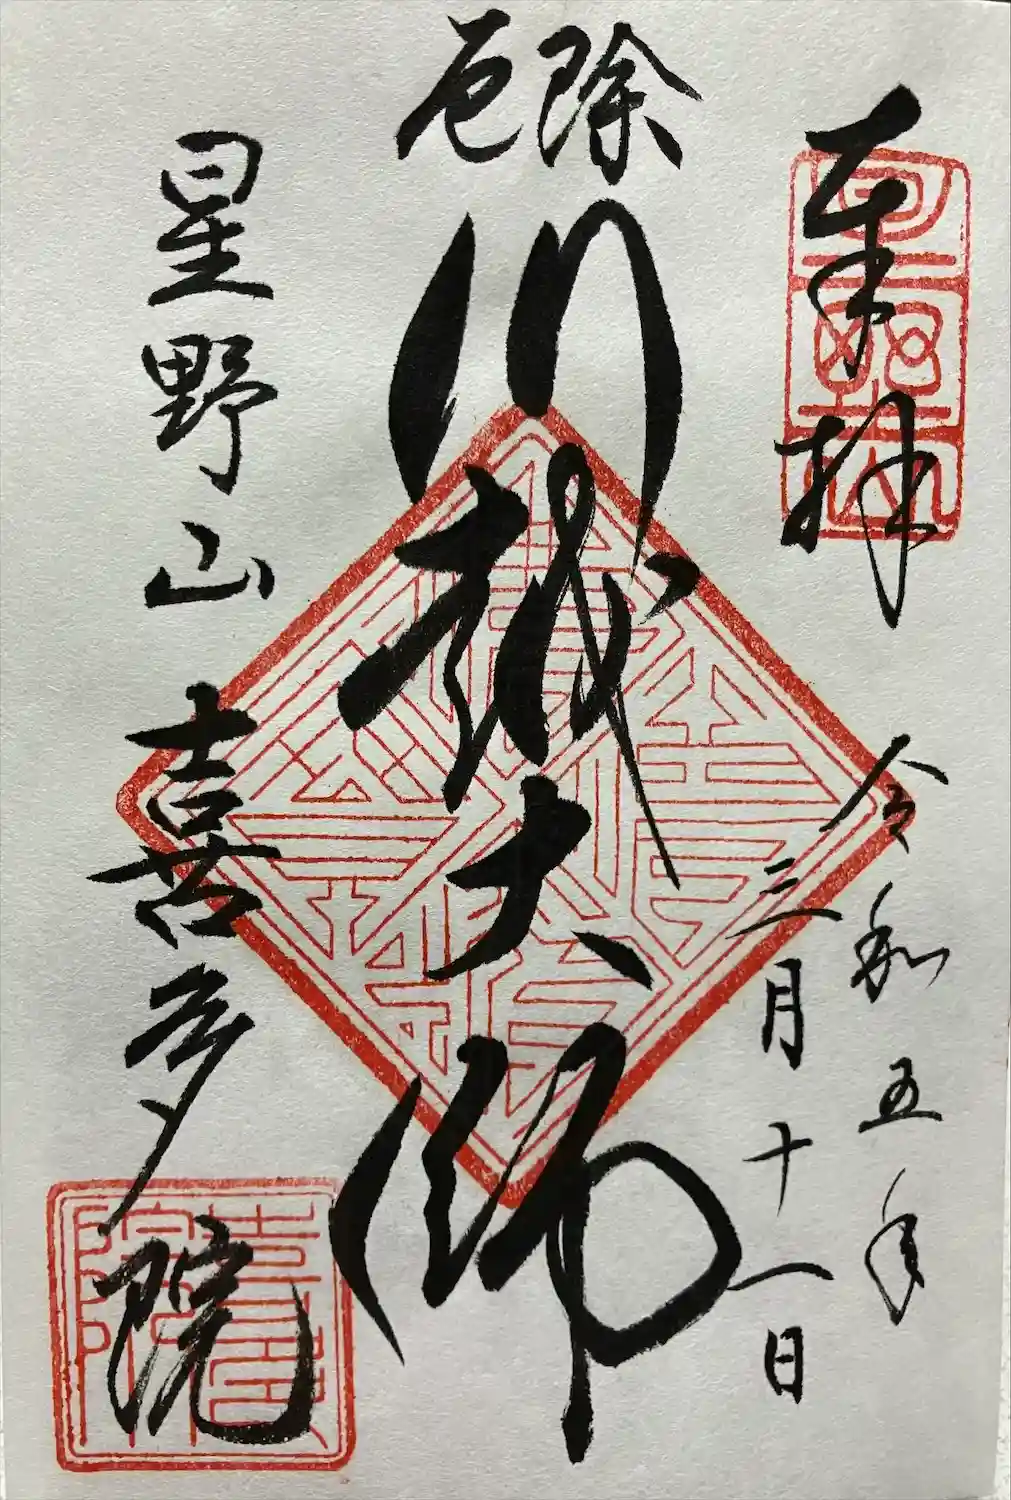 奉拝
令和五年
三月十一日
厄除
川越大師
星野山
喜多院